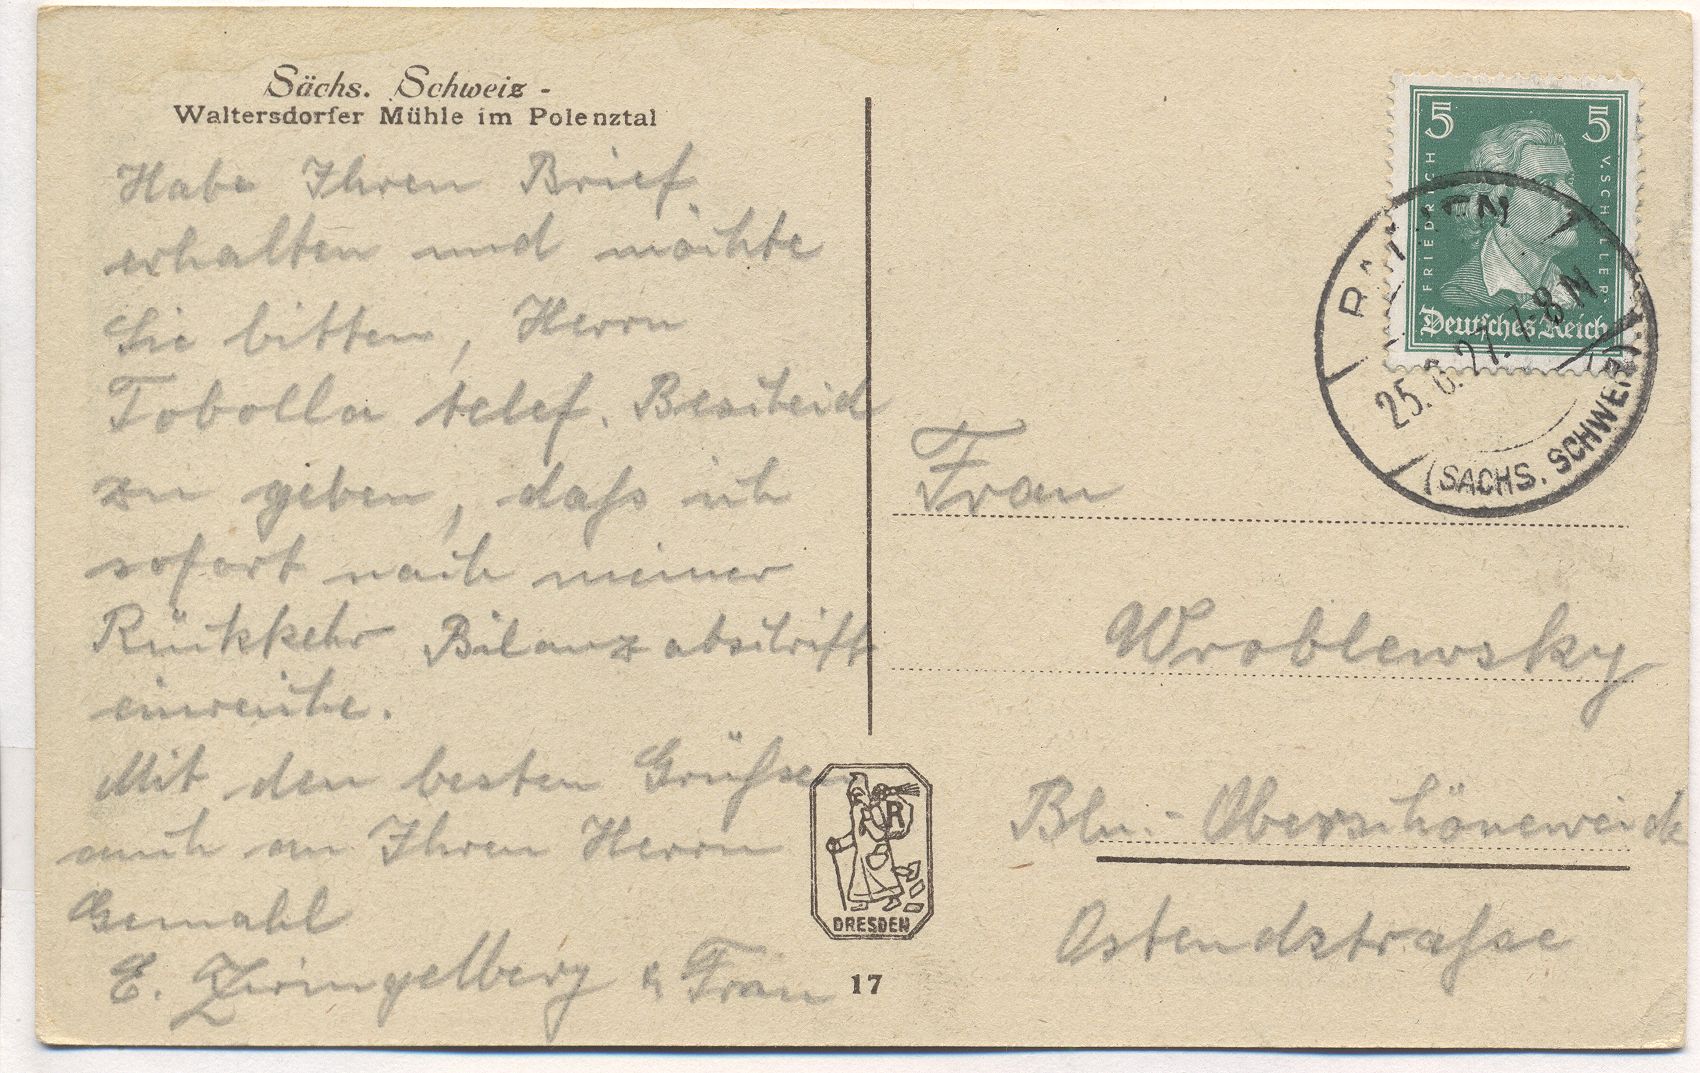 Sächs. Schweiz -
Waltersdorfer Mühle im Polenztal
Habe Ihren Brief
erhalten und möchte
Sie bitten, Herrn
Tobolla telef. Bescheid
zu geben, daß ich
sofort nach meiner
Rückkehr Bilanzabschrift
einreiche.
Mit den besten Grüßen
auch an Ihren Herrn
Gemahl
E. Zwingelberg & Frau
5 5
FRIEDRICH V. SCHILLER
Deutsches Reich
25. 6. 27. 7-8 N
(SÄCHS. SCHWEIZ)
Frau
Wroblewsky
Bln.- Oberschöneweide
Ostendstraße
R
DRESDEN
17